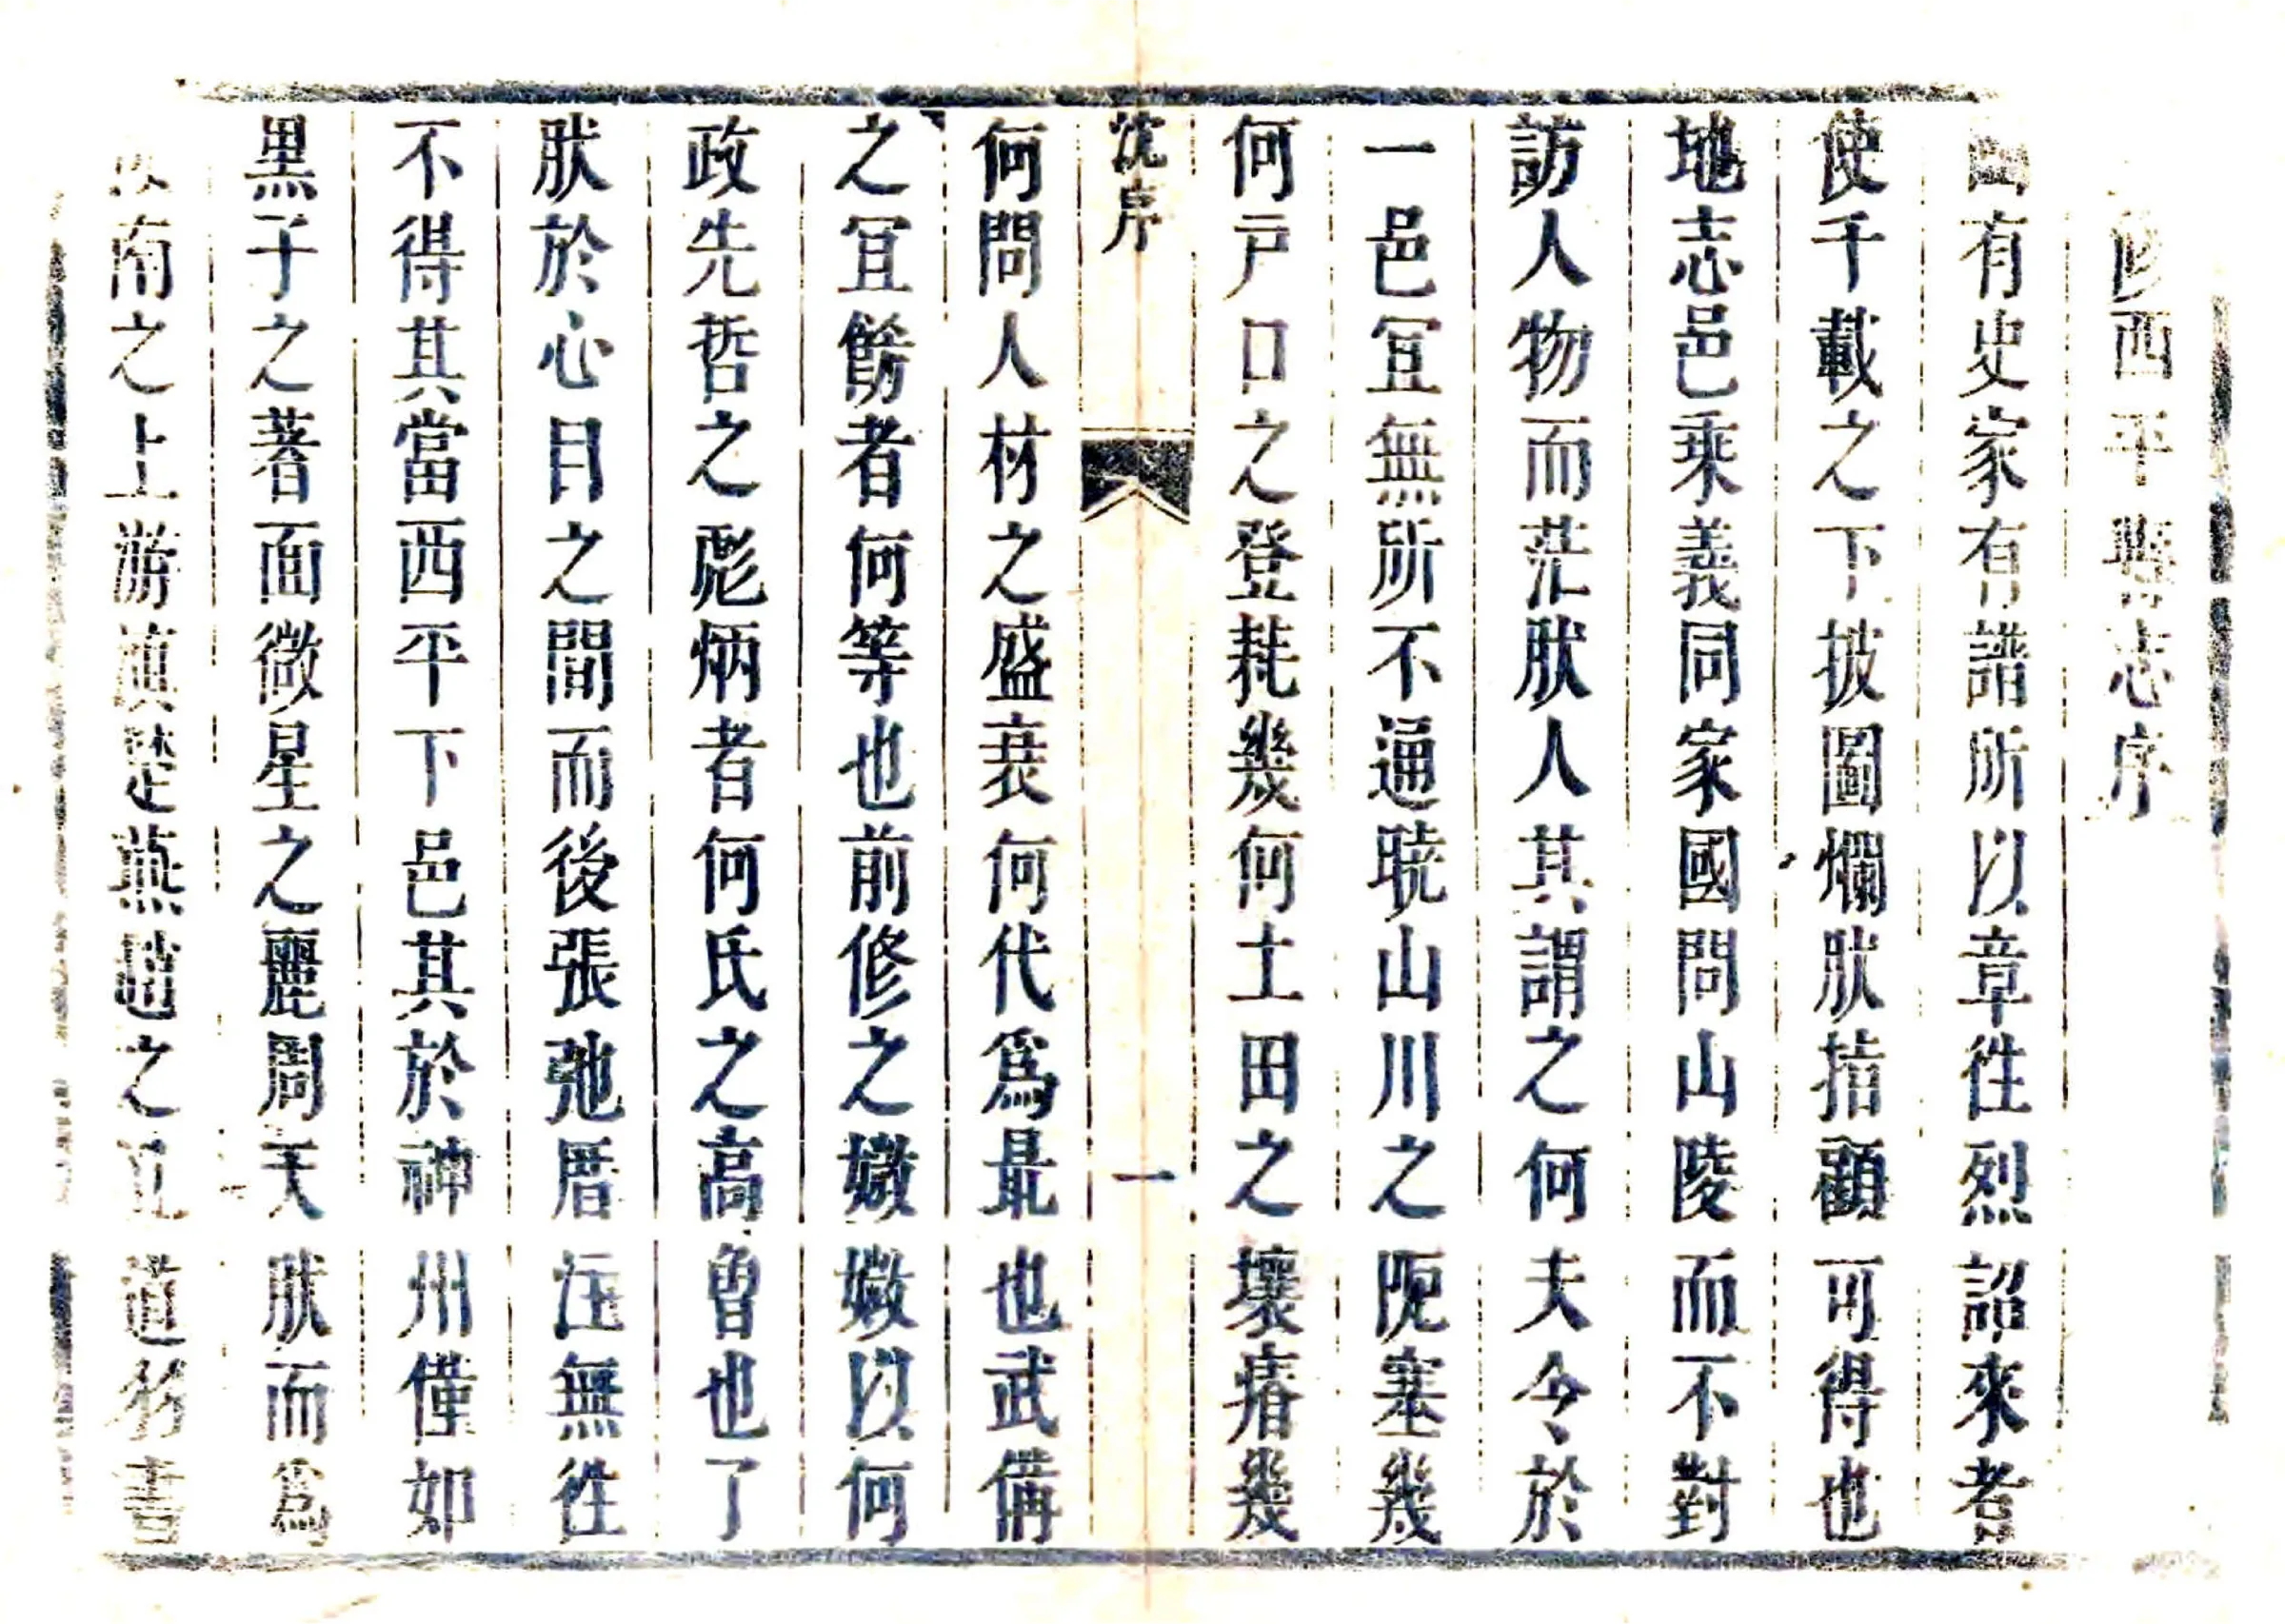 修西平縣志序
國有史家有譜所以章徃烈詔來者
使千載之下披圖爛肰指顧可得也
地志邑乘義同家國問山陵而不對
訪人物而茫肰人其謂之何夫令於
一邑冝無所不通暁山川之阨塞幾
何戸口之登耗幾何土田之壤瘠幾
沈序
一
何問人材之盛衰何代爲最也武備
之冝飭者何等也前修之媺媺以何
政先哲之彪炳者何氏之高曾也了
肰於心目之間而後張弛厝注無徃
不得其當西平下邑其於神州僅如
黒子之著面微星之麗周天肰而爲
汝南之上游滇楚燕趙之孔道矧書